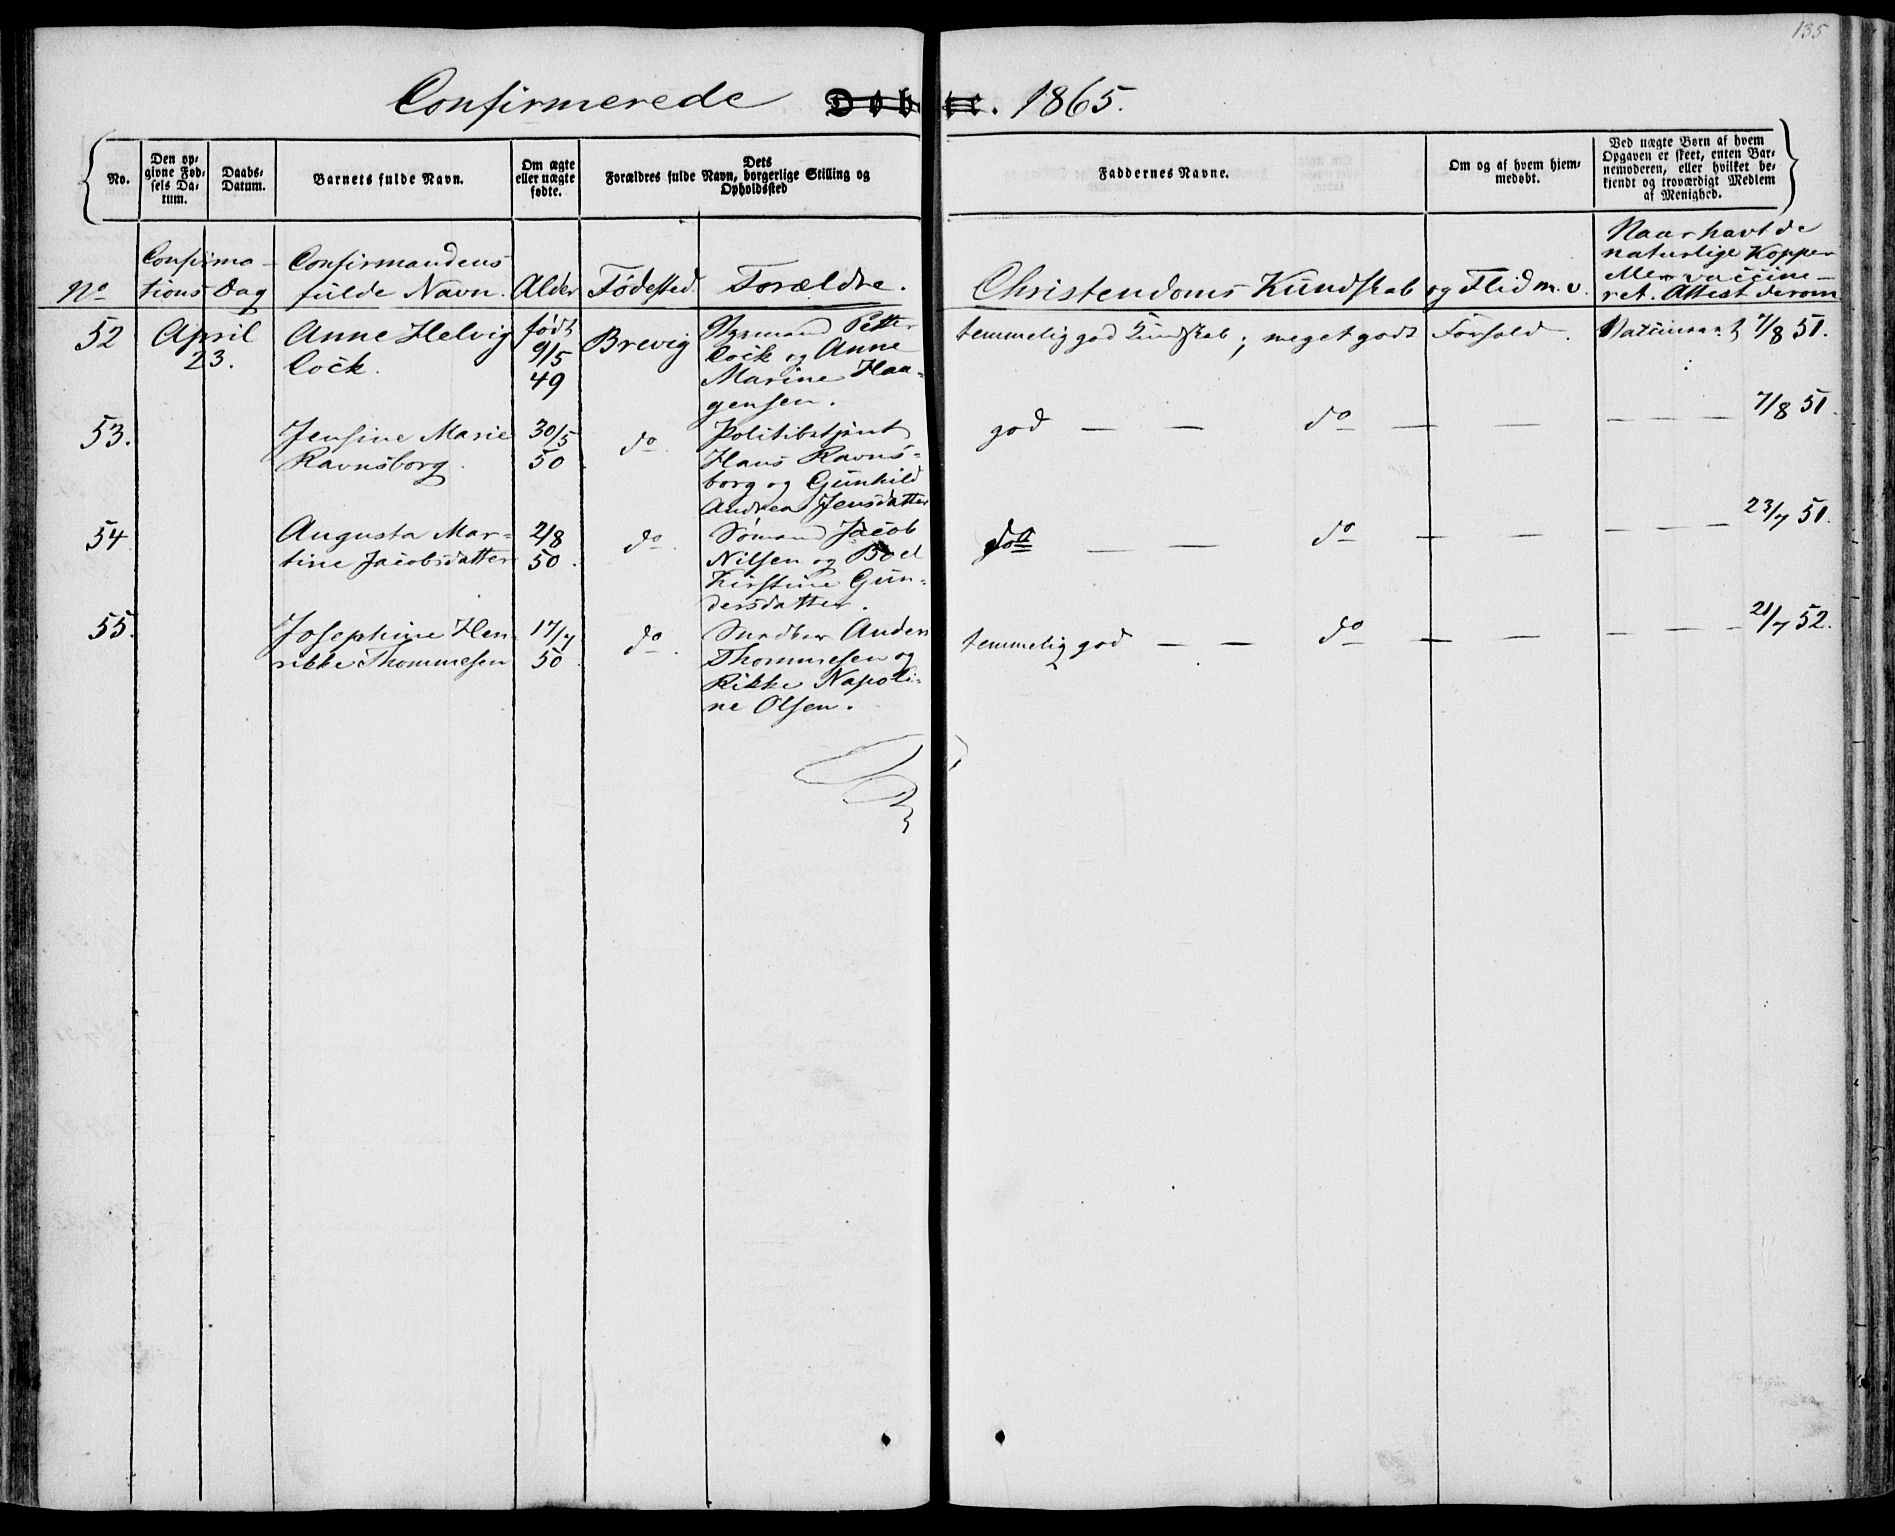 135
Confirmerede Døbte. 1865.
No.
Den op-
givne Fød-
sels Da-
tum.
Daabs-
Datum.
Barnets fulde Navn.
Om ægte
eller uægte
fødte.
Dets
Forældres fulde Navn, borgerlige Stilling og
Opholdssted
Faddernes Navne.
Om og af hvem hjem-
medøbt.
Ved uægte Børn af hvem
Opgaven er skeet, enten Bar-
nemoderen, eller hvilket be-
kjendt og troværdigt Medlem
af Menighed.
No
Confirma-
tions Dag
Confirmandens
fulde Navn.
Alder
Fødested
Forældre.
Christendoms Kundskab og Flid m.v.
Naar havt de
naturlige Kopper
eller vaccine-
ret. Attest derom
52
April
23.
Anne Helvig
Cock.
født
9/5
49
Brevig
Petter
Cock og Anne
Marine Haa-
gensen.
temmelig god Kundskab; meget godt Forhold.
Vaccineret 7/8 51.
53.
Jensine Marie
Ravnsborg.
30/5
50.
do.
Politibetjent
Hans Ravns-
borg og Gunhild
Andrea Jensdatter
god — — do — — — — — 7/8 51.
54
Augusta Mar-
tine Jacobsdatter
2/8
50.
do.
Sømand Jacob
Nilsen og Boel
Kirstine Gun-
dersdatter.
do — — do — — — — — 23/7 51.
55.
Josephine Hen-
rikke Thommesen
17/7
50.
do.
Snedker Anders
Thommesen og
Rikke Napoli-
ne Olsen.
temmelig god — — do — — — — — 21/7 52.